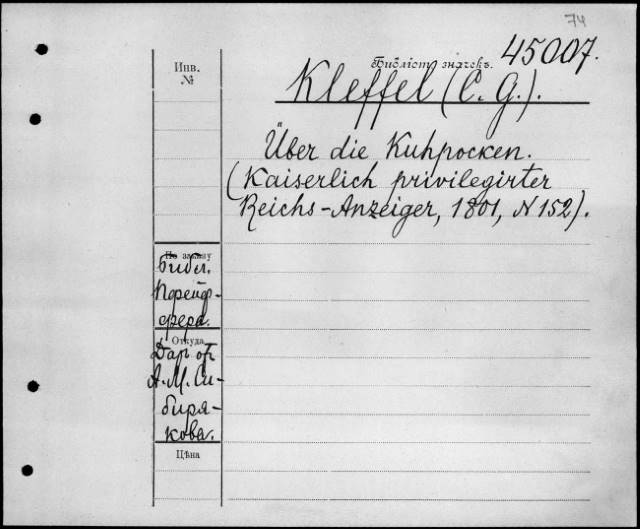 74
45007.
Инв.
№
Библіот. значекъ.
Kleffel (C. G.).
Über die Kuhpocken.
(Kaiserlich privilegirter
Reichs-Anzeiger, 1801, N 152).
По заказу
Библ.
Пфейф-
фера.
Откуда
Дар от
А. М. Си-
биря-
кова.
Цѣна